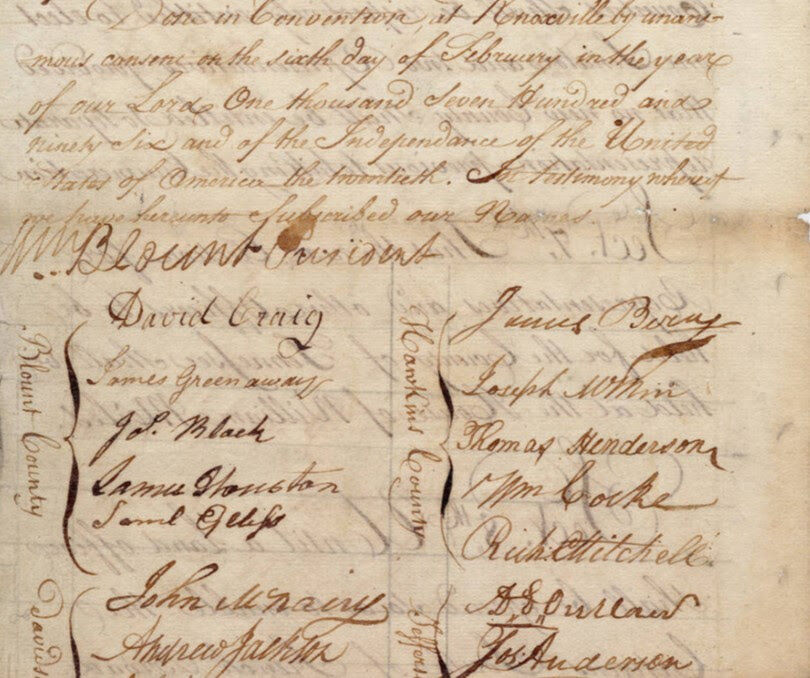 Done in Convention, at Knoxville by unani-
mous consent on the sixth day of February in the year
of our Lord One thousand Seven Hundred and
ninety Six and of the Independance of the United
States of America the twentieth. In testimony whereof
we have hereunto Subscribed our Names
Wm Blount President
Blount County
David Craig
James Greenaway
Jos. Black
Samuel Houston
Saml
Hawkins County
James Berry
Joseph McMinn
Thomas Henderson
Wm Cocke
Richd Mitchell
David
John McNairy
Andrew Jackson
Jeffers
A. Outlaw
Jos. Anderson